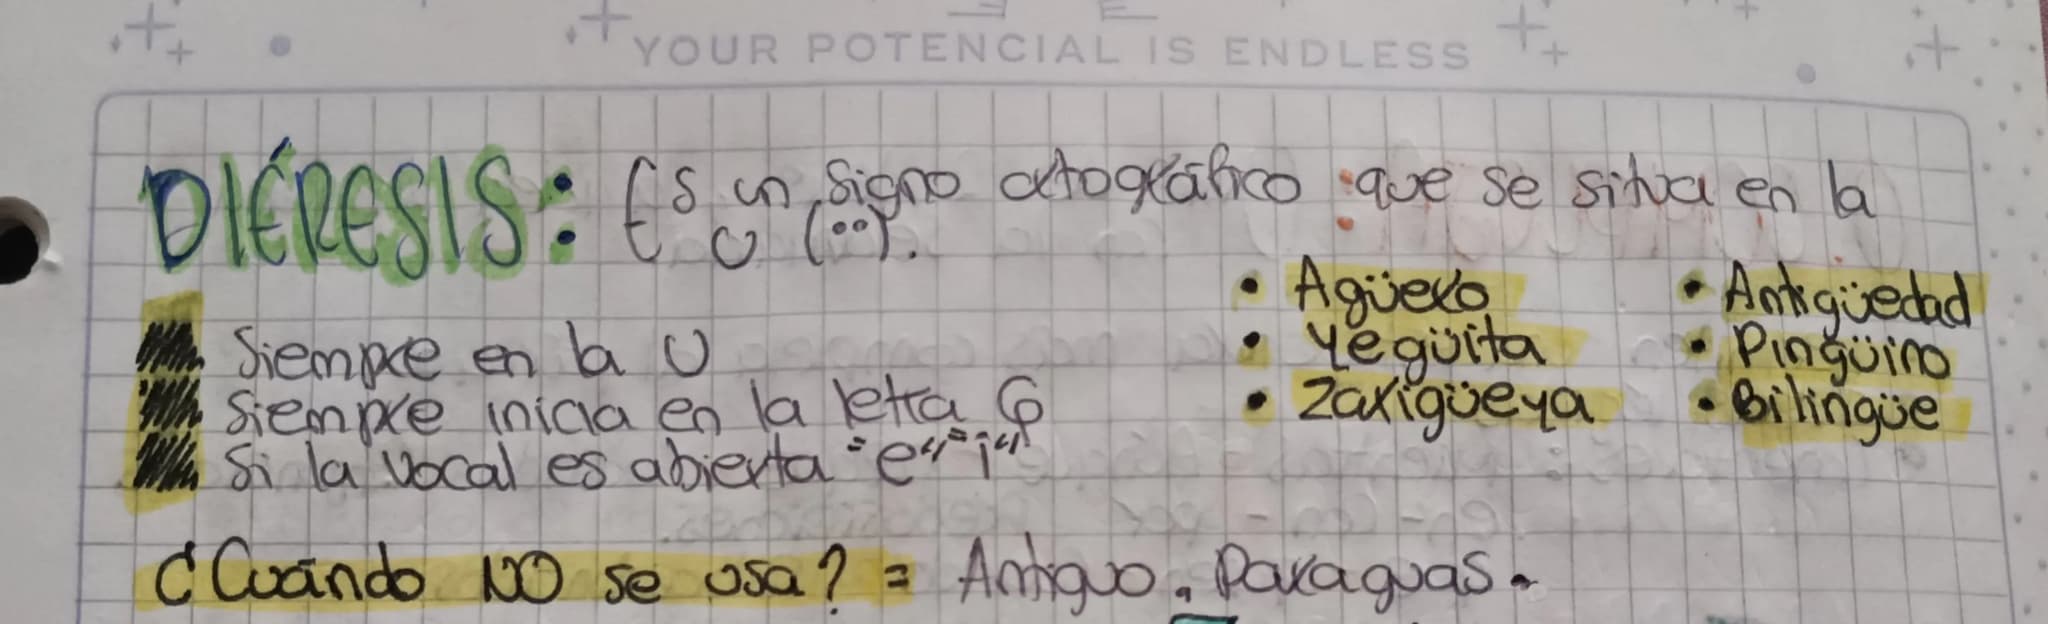 YOUR POTENCIAL IS ENDLESS
DIÉRESIS: Es un signo ortográfico que se situa en la
U (¨).
• Agüero
• Yegüita
• Zarigüeya
• Antigüedad
• Pingüino
• Bilingüe
Siempre en la U
Siempre inicia en la letra G
Si la vocal es abierta "e" "i"
¿Cuándo NO se usa? = Antiguo. Paraguas.